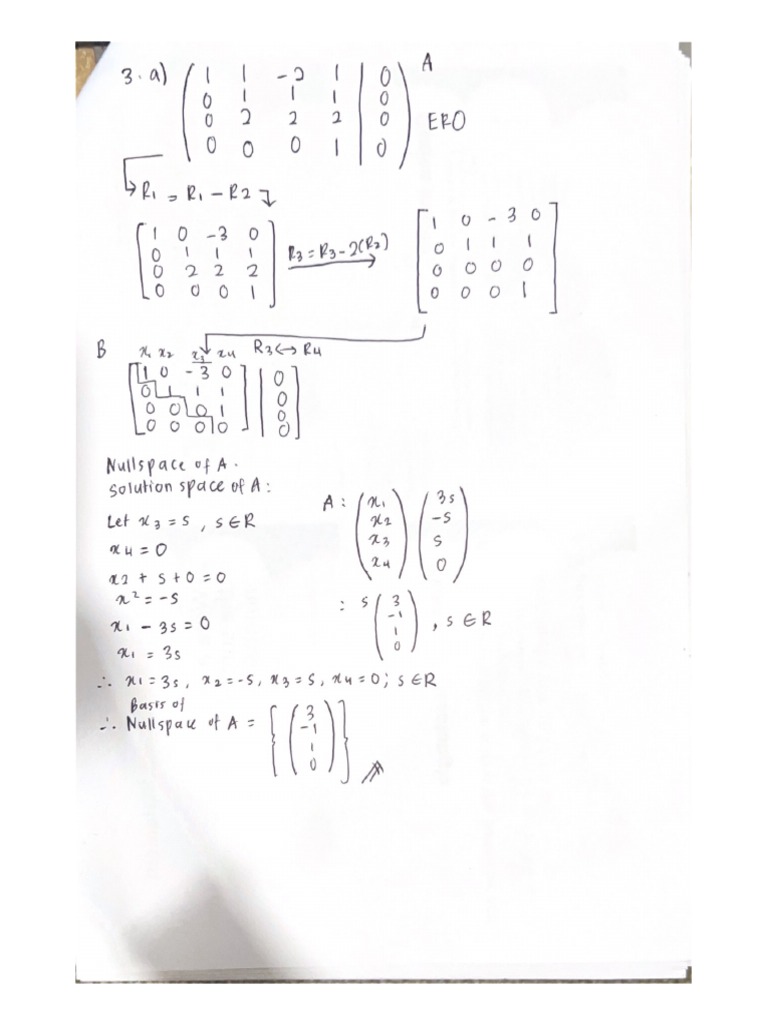 3. a) ( 1 1 -2 1 | 0 ) A
0 1 1 1 | 0
0 2 2 2 | 0 ERO
0 0 0 1 | 0
R1 = R1 - R2
[ 1 0 -3 0 ] R3 = R3 - 2(R2) [ 1 0 -3 0 ]
0 1 1 1 0 1 1 1
0 2 2 2 0 0 0 0
0 0 0 1 0 0 0 1
B x1 x2 x3 x4 R3 ↔ R4
[ 1 0 -3 0 ] | 0 ]
0 1 1 1 | 0
0 0 0 1 | 0
0 0 0 0 | 0
Nullspace of A.
Solution space of A:
Let x3 = s, s ∈ R
x4 = 0
x2 + s + 0 = 0
x² = -s
x1 - 3s = 0
x1 = 3s
A: ( x1 ) ( 3s )
x2 -s
x3 s
x4 0
: s ( 3 )
-1
1 , s ∈ R
0
∴ x1 = 3s, x2 = -s, x3 = s, x4 = 0; s ∈ R
Basis of
∴ Nullspace of A = { ( 3 ) }
-1
1
0